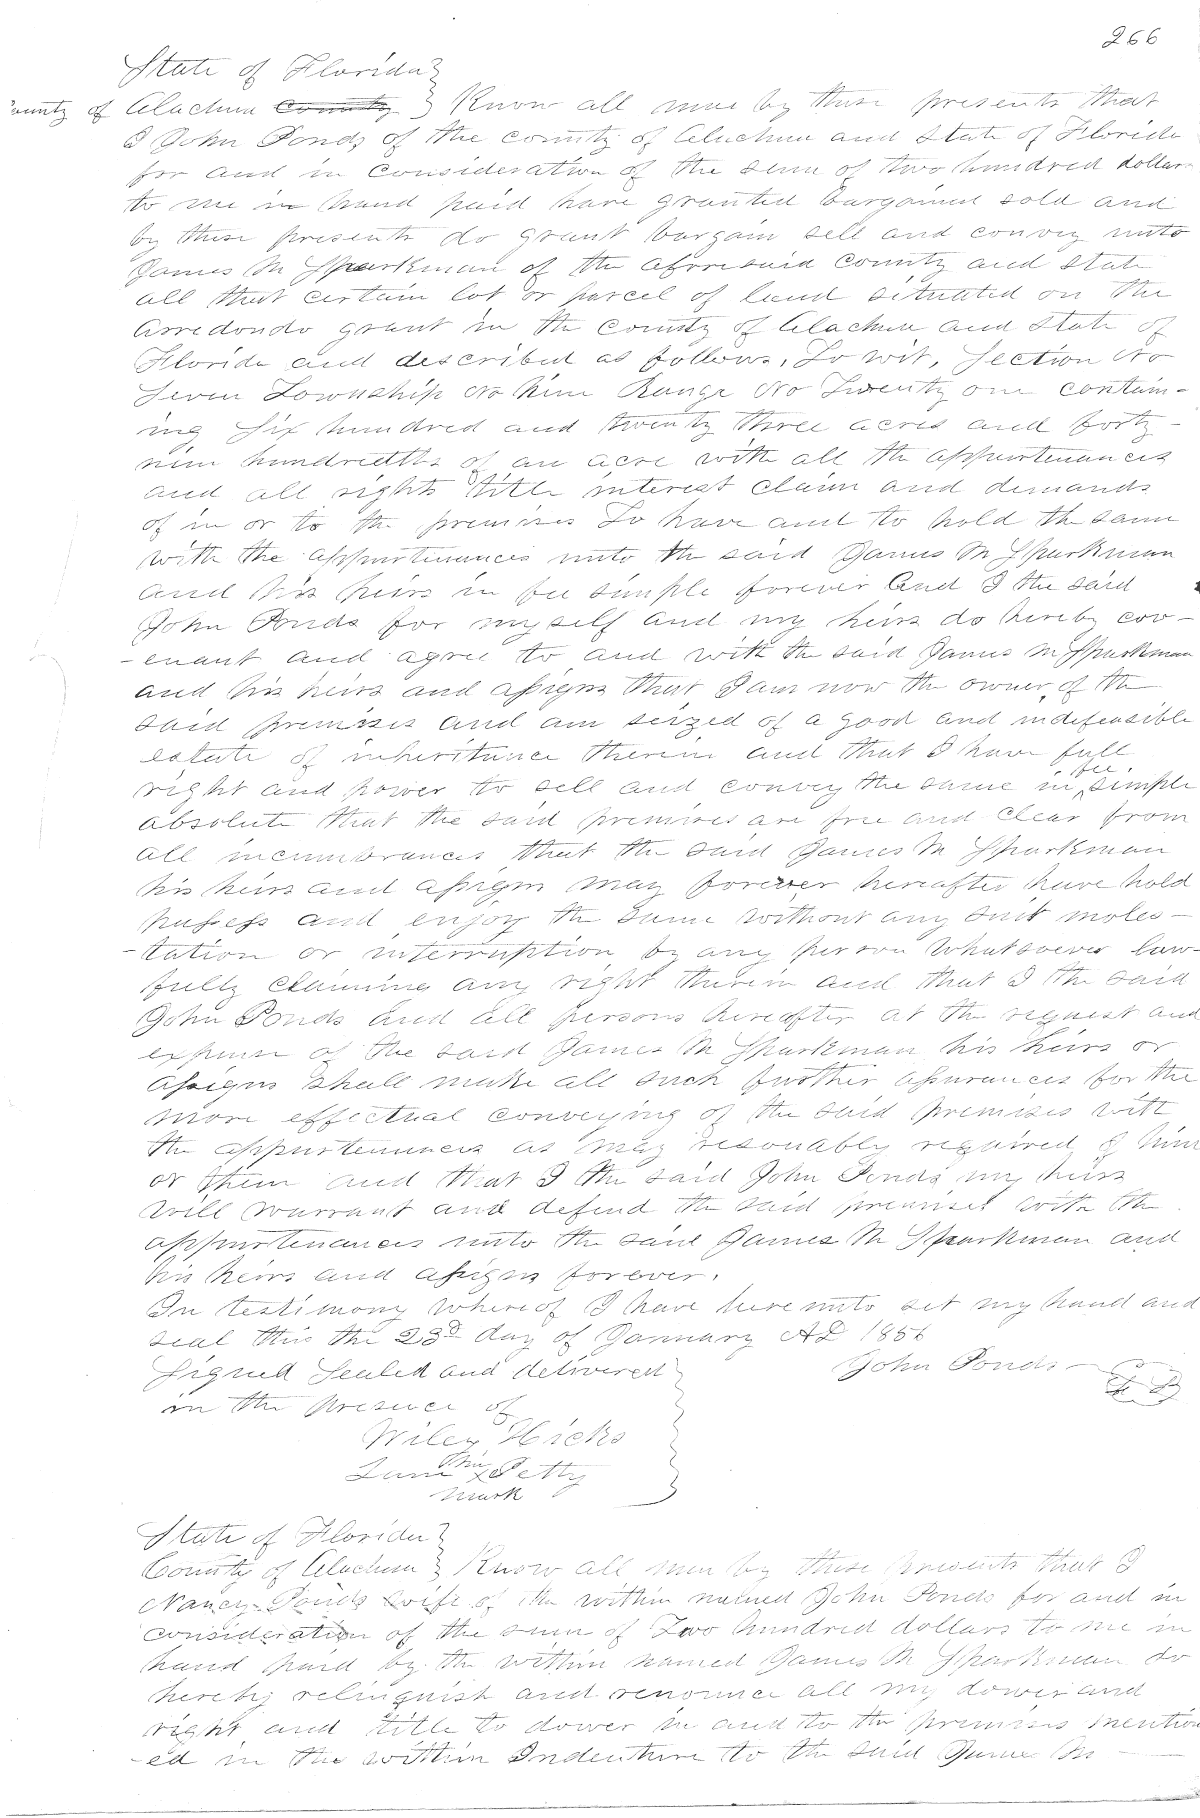 266
State of Florida }
County of Alachua County } Know all men by these presents that
I John Ponds of the county of Alachua and State of Florida
for and in consideration of the sum of two hundred dollars
to me in hand paid have granted bargained sold and
by these presents do grant bargain sell and convey unto
James M Sparkman of the aforesaid county and state
all that certain lot or parcel of land situated on the
Arredondo grant in the county of Alachua and State of
Florida and described as follows, To wit, Section No
Seven Township No Nine Range No Twenty one contain-
ing Six hundred and twenty three acres and forty-
nine hundredths of an acre with all the appurtenances
and all rights title interest claim and demands
of in or to the premises To have and to hold the same
with the appurtenances unto the said James M Sparkman
and his heirs in fee simple forever And I the said
John Ponds for myself and my heirs do hereby cov-
-enant and agree to and with the said James M Sparkman
and his heirs and assigns that I am now the owner of the
said premises and am seized of a good and indefeasible
estate of inheritance therein and that I have full
right and power to sell and convey the same in fee simple
absolute that the said premises are free and clear from
all incumbrances that the said James M Sparkman
his heirs and assigns may forever hereafter have hold
possess and enjoy the same without any suit moles-
-tation or interruption by any person whatsoever law-
fully claiming any right therein and that I the said
John Ponds and all persons hereafter at the request and
expense of the said James M Sparkman his heirs or
assigns shall make all such further assurances for the
more effectual conveying of the said premises with
the appurtenances as may resonably required of him
or them and that I the said John Ponds my heirs
will warrant and defend the said premises with the
appurtenances unto the said James M Sparkman and
his heirs and assigns forever.
In testimony whereof I have here unto set my hand and
seal this the 23d day of January AD 1856
Signed Sealed and delivered } John Ponds
in the presence of
Wiley Hicks
his
x Petty
mark
State of Florida }
County of Alachua } Know all men by these presents that I
Nancy Ponds wife of the within named John Ponds for and in
consideration of the sum of Two hundred dollars to me in
hand paid by the within named James M Sparkman do
hereby relinquish and renounce all my dower and
right and title to dower in and to the premises mention
-ed in the within Indenture to the said James M